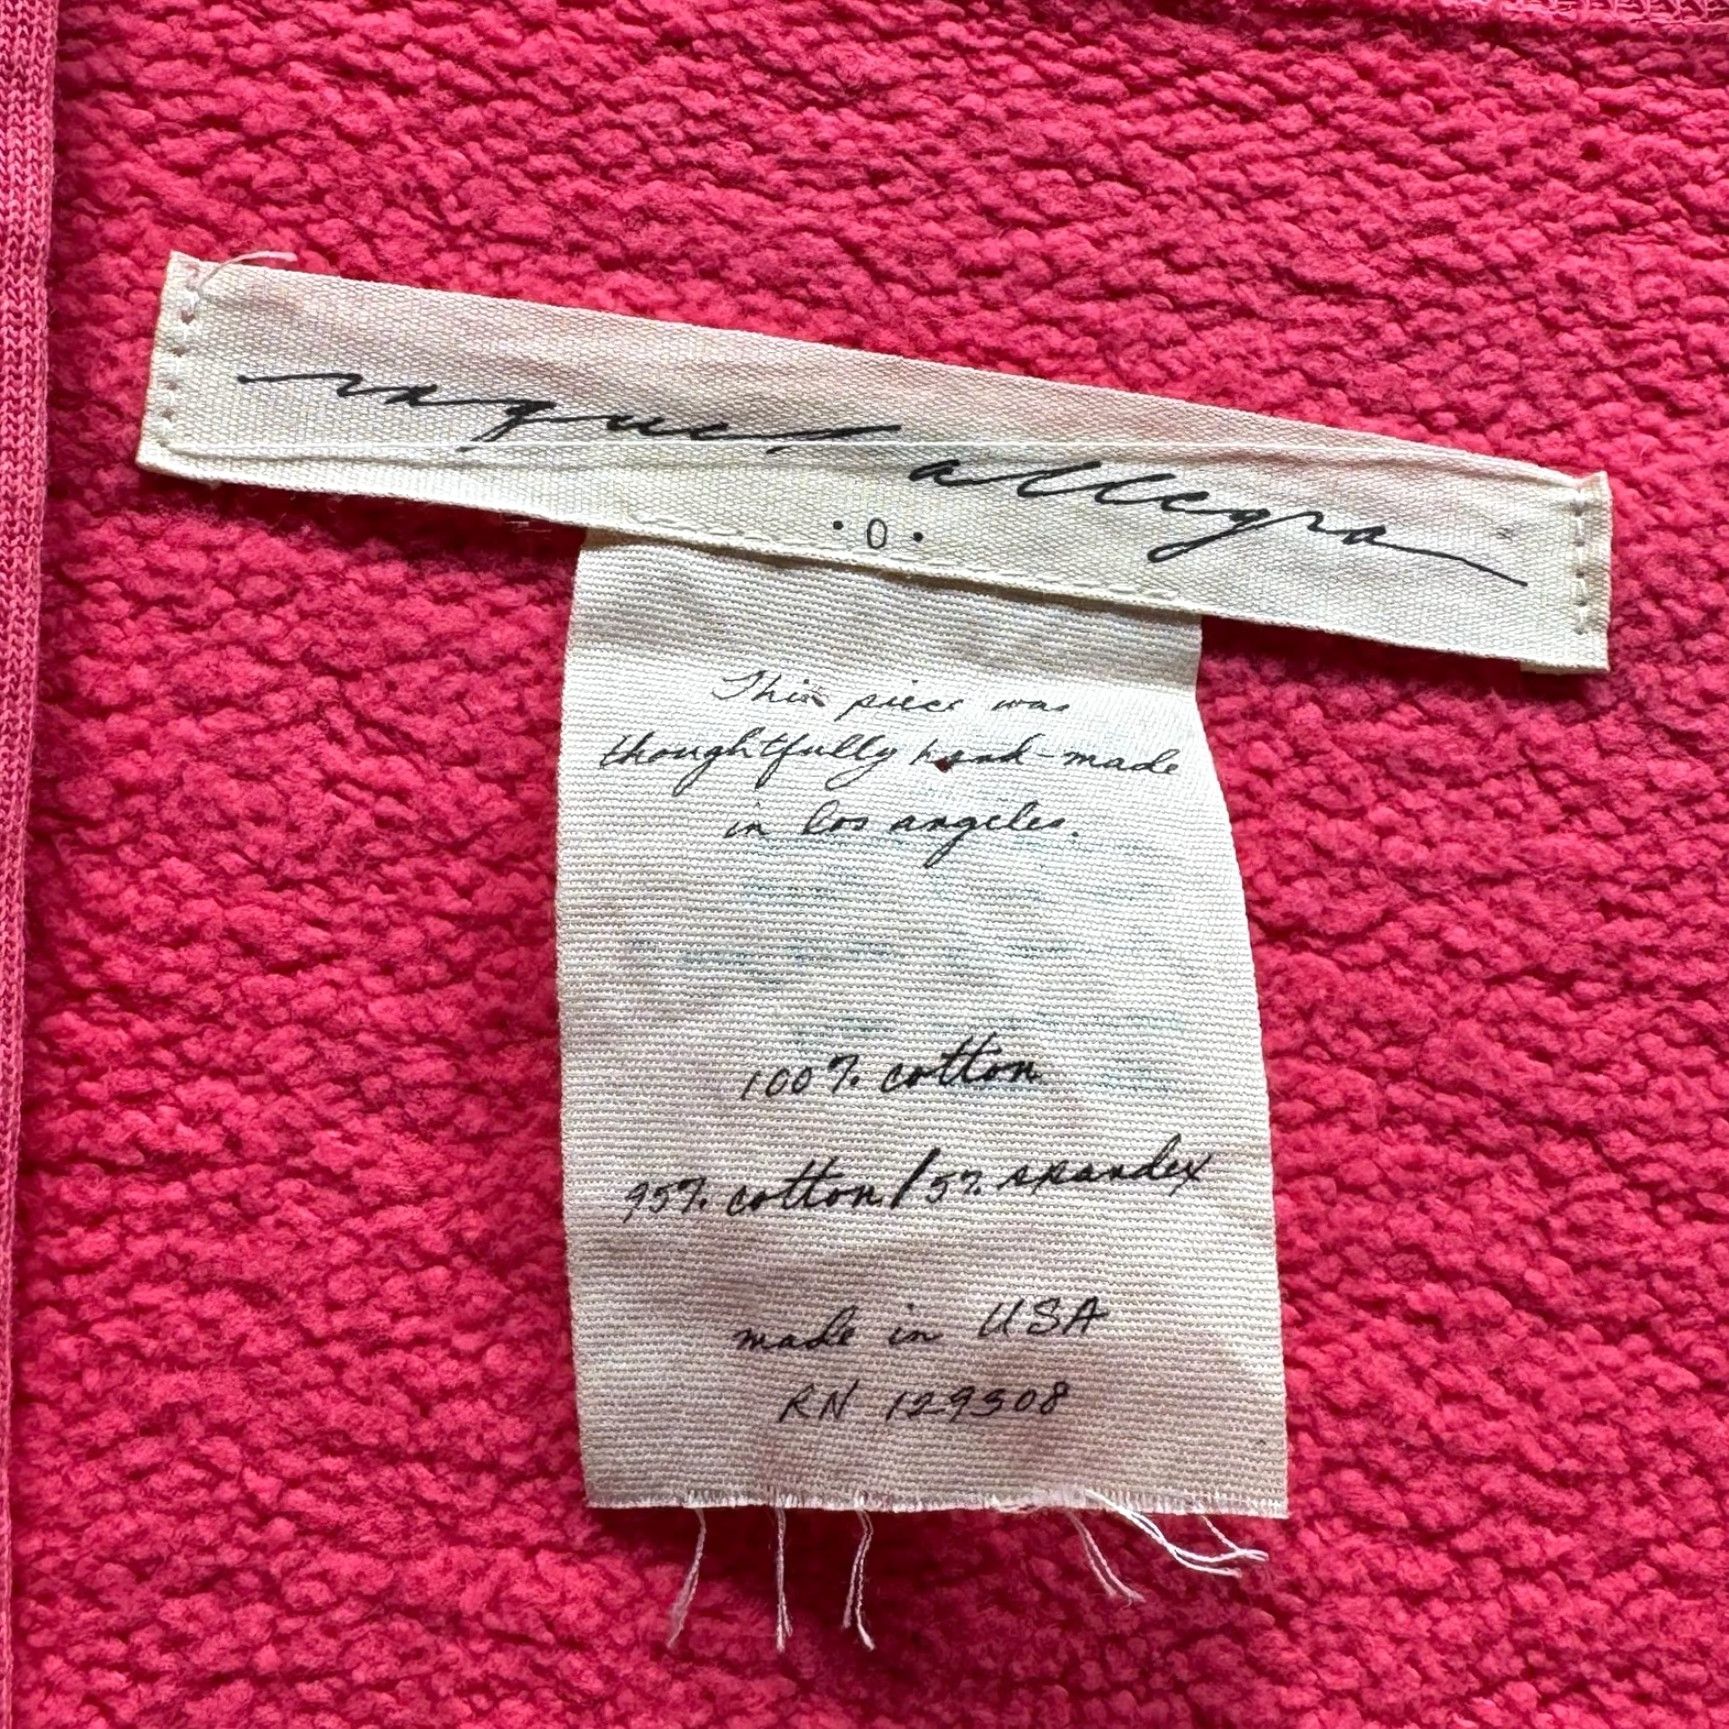 raquel allegra
·0·
This piece was
thoughtfully hand-made
in los angeles.
100% cotton
95% cotton/5% spandex
made in USA
RN 129308